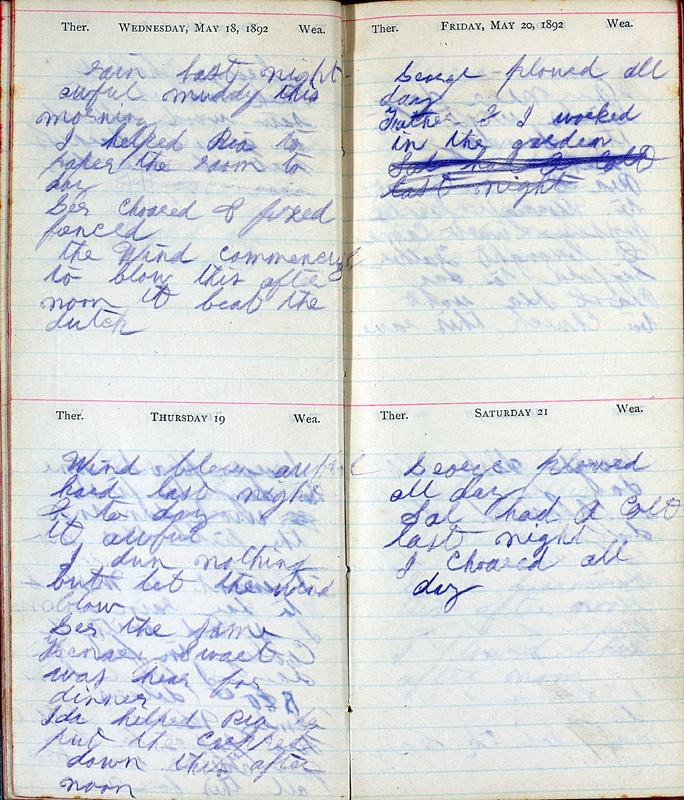 Ther. WEDNESDAY, MAY 18, 1892 Wea.
rain last night
awful muddy this
morning
I helped Ria to
paper the room to
day
Geo choared & fixed
fenced
the Wind commencing
to blow this after
noon it beat the
dutch
Ther. THURSDAY 19 Wea.
Wind blew awful
hard last night
& to day
it awful
I dun nothing
but let the wind
blow
Geo the same
Swaet
was hear for
dinner
Ida helped Ria to
put the carpket
down this after
noon
Ther. FRIDAY, MAY 20, 1892 Wea.
George plowed all
day
Father & I worked
in the garden
Sal had a Colt
last night
Ther. SATURDAY 21 Wea.
George plowed
all day
Sal had a Colt
last night
I Choared all
day